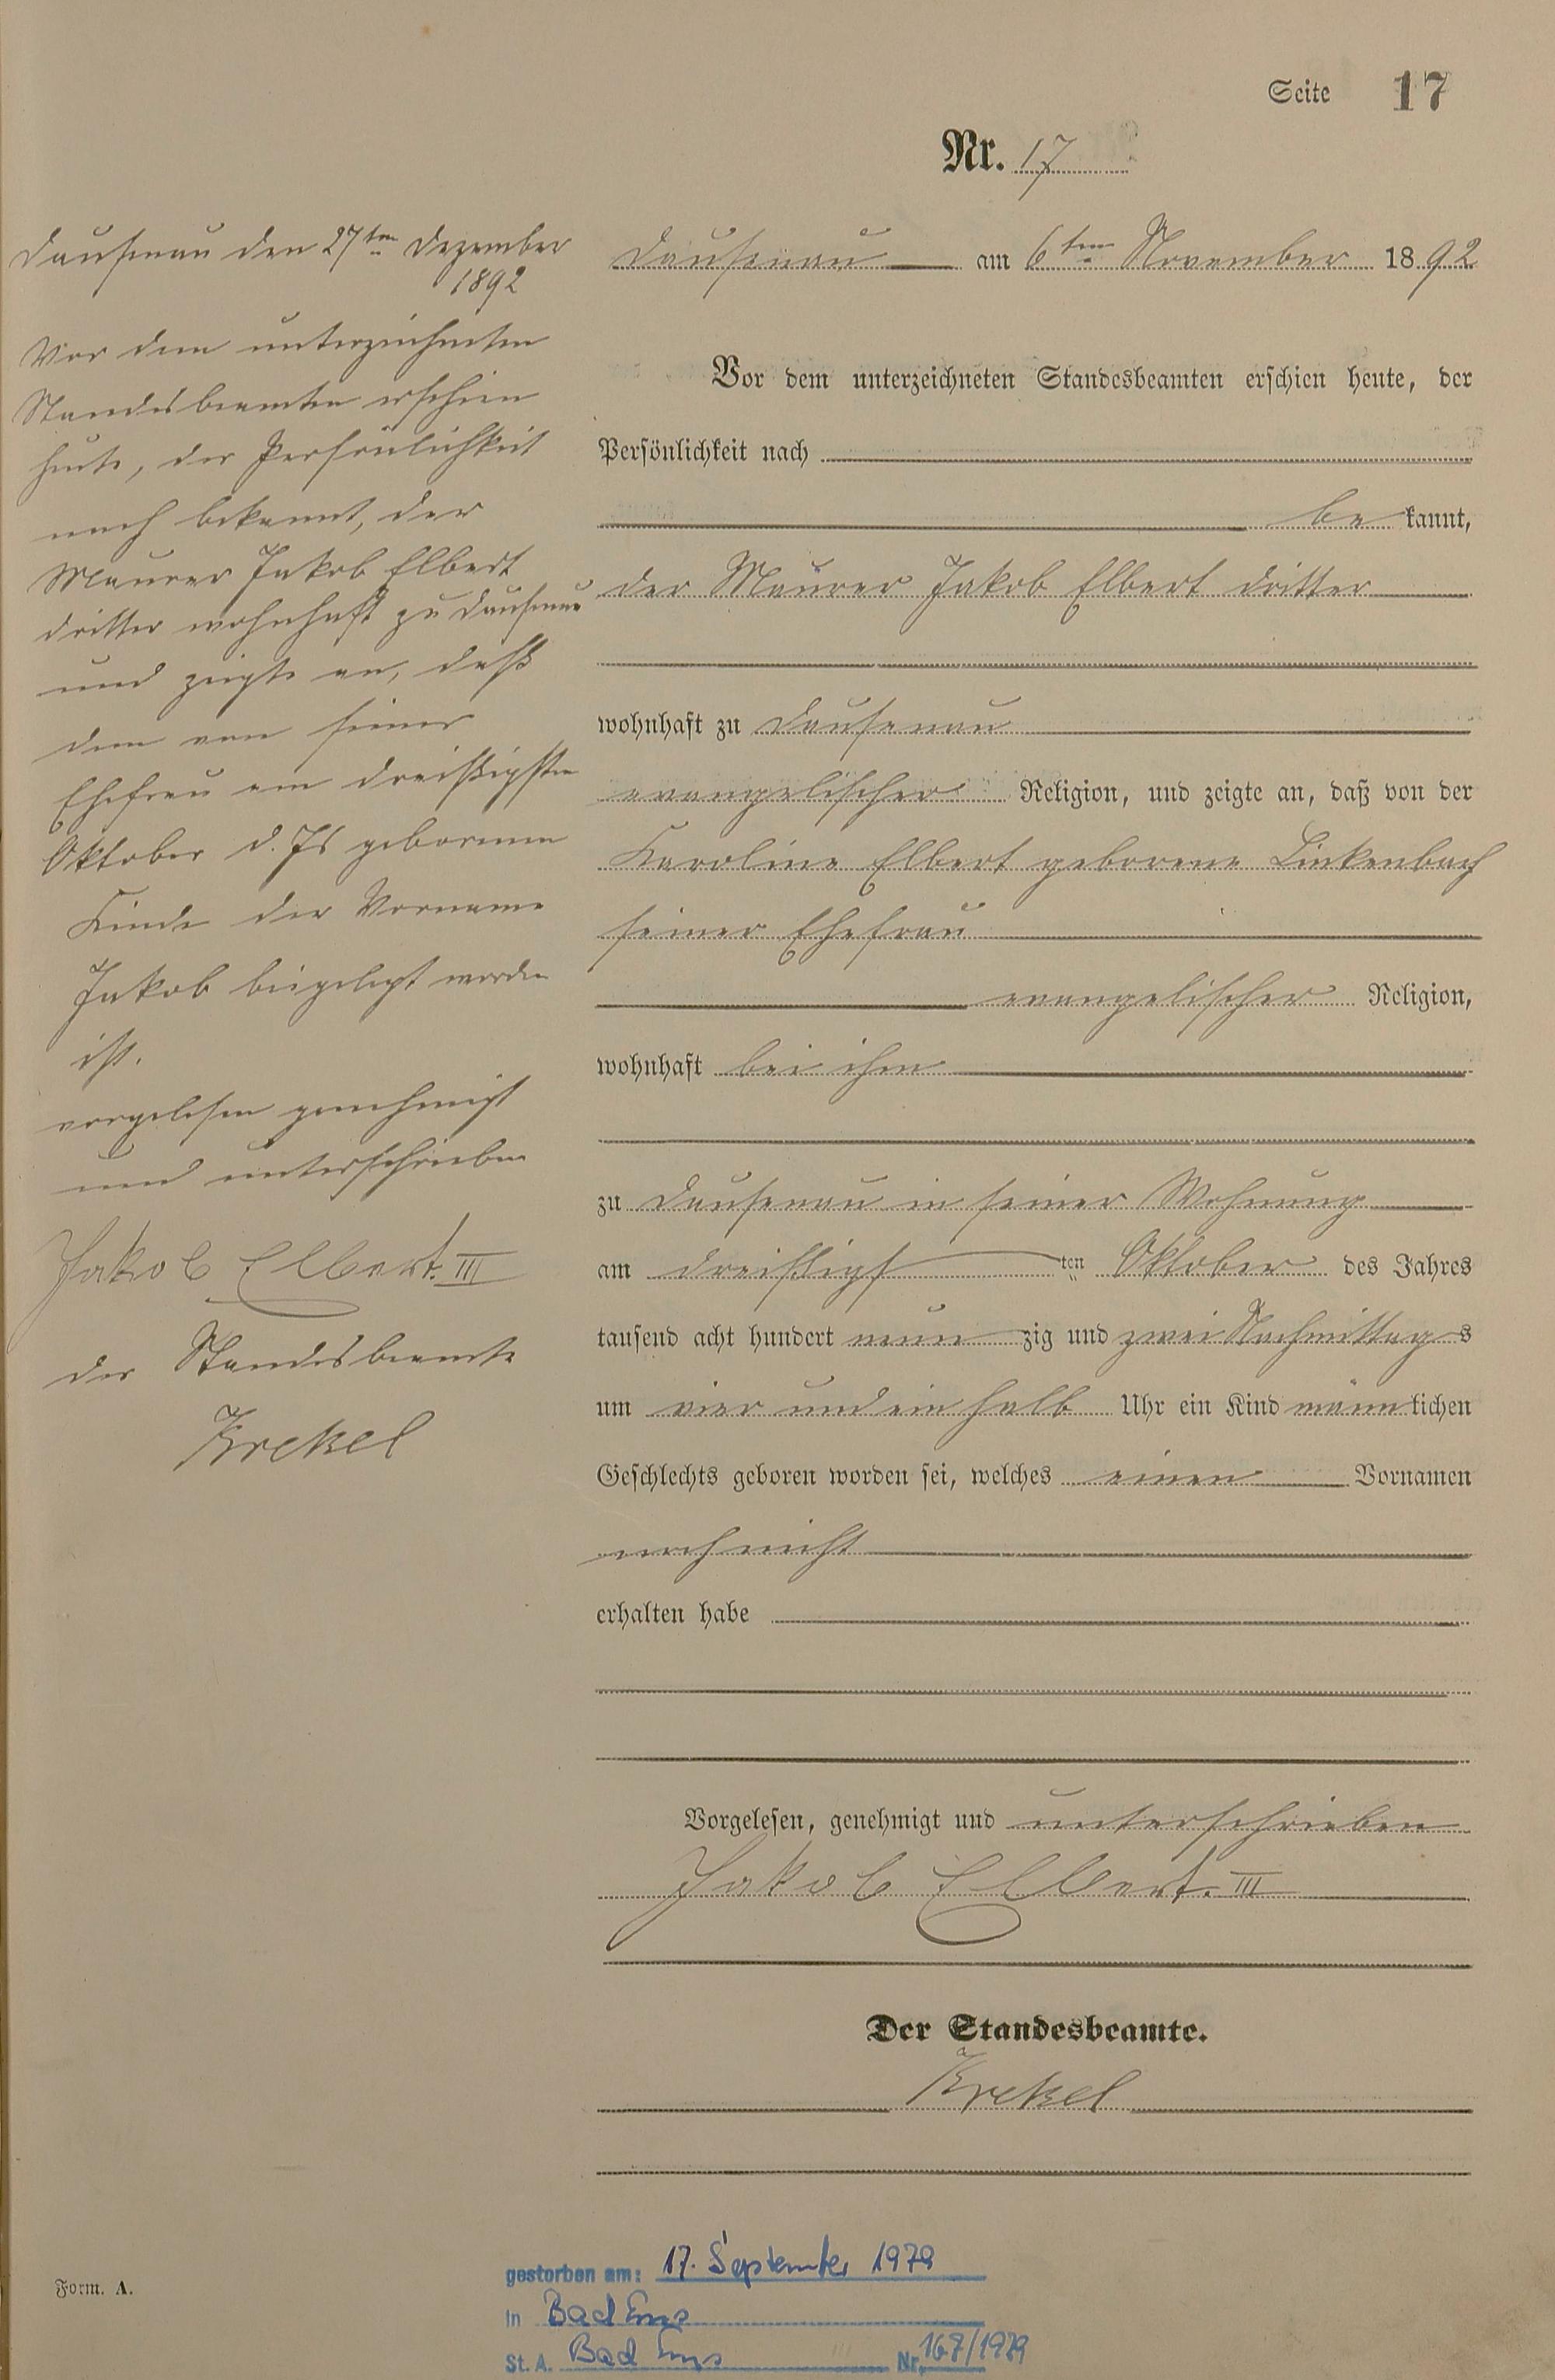 Seite 17
Nr. 17
Dausenau den 27ten Dezember
1892
Vor dem unterzeichneten
Standesbeamten erschien
heute, der Persönlichkeit
nach bekannt, der
Maurer Jakob Elbert
dritter wohnhaft zu Dausenau
und zeigte an, daß
dem von seiner
Ehefrau am dreißigsten
Oktober d. Js geborenen
Kinde der Vorname
Jakob beigelegt worden
ist.
vorgelesen genehmigt
und unterschrieben
Jakob Elbert. III
der Standesbeamte
Krekel
Dausenau am 6ten November 1892
Vor dem unterzeichneten Standesbeamten erschien heute, der
Persönlichkeit nach
bekannt,
der Maurer Jakob Elbert dritter
wohnhaft zu Dausenau
evangelischer Religion, und zeigte an, daß von der
Karoline Elbert geborene Linkenbach
seiner Ehefrau
evangelischer Religion,
wohnhaft bei ihm
zu Dausenau in seiner Wohnung
am dreißigsten Oktober des Jahres
tausend acht hundert neunzig und zwei Nachmittags
um vier und ein halb Uhr ein Kind männlichen
Geschlechts geboren worden sei, welches einen Vornamen
noch nicht
erhalten habe
Vorgelesen, genehmigt und unterschrieben
Jakob Elbert. III
Der Standesbeamte.
Krekel
Form. A.
gestorben am: 17. September 1979
in Bad Ems
St. A. Bad Ems Nr. 167/1979